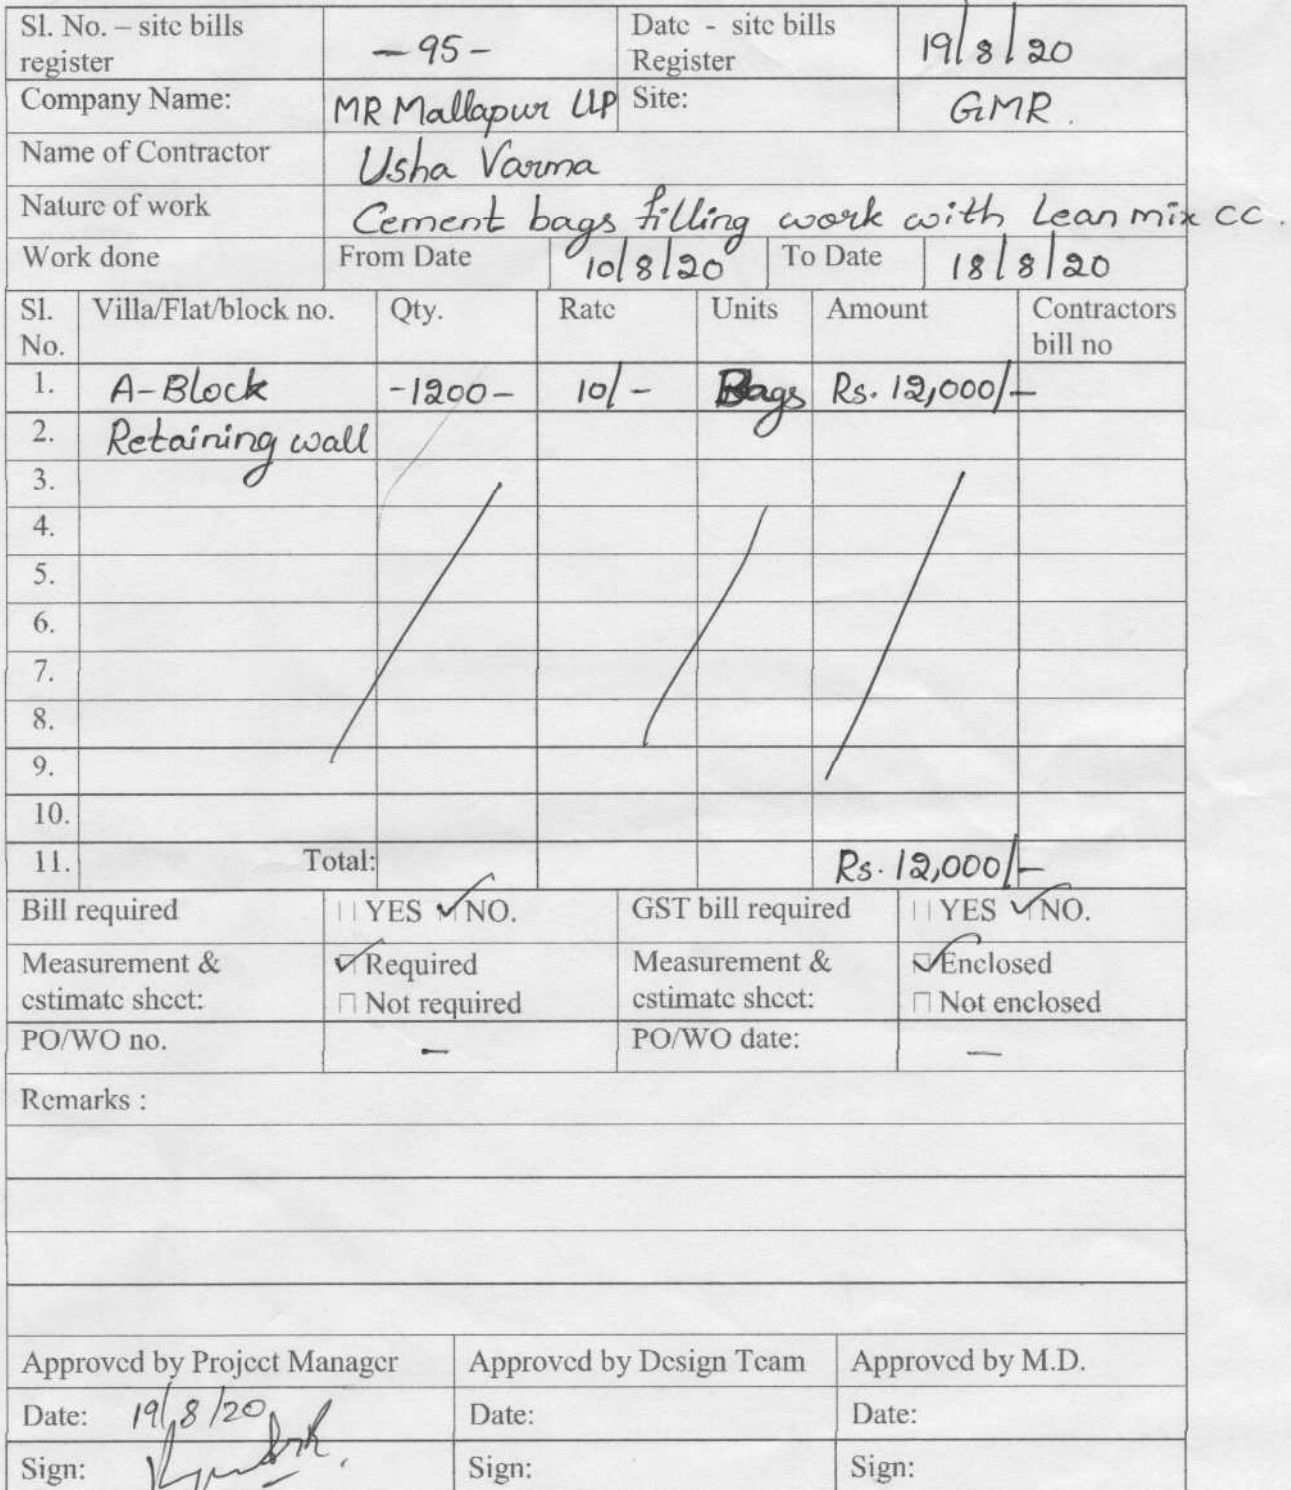 Sl. No. – site bills register -95- Date - site bills Register 19/8/20
Company Name: MR Mallapur LLP Site: GMR.
Name of Contractor Usha Varma
Nature of work Cement bags filling work with Lean mix CC.
Work done From Date 10/8/20 To Date 18/8/20
Sl. No. Villa/Flat/block no. Qty. Rate Units Amount Contractors bill no
1. A-Block -1200- 10/- Bags Rs. 12,000/-
2. Retaining wall
3.
4.
5.
6.
7.
8.
9.
10.
11. Total: Rs. 12,000/-
Bill required YES NO. GST bill required YES NO.
Measurement & estimate sheet: Required Not required Measurement & estimate sheet: Enclosed Not enclosed
PO/WO no. - PO/WO date: -
Remarks :
Approved by Project Manager Approved by Design Team Approved by M.D.
Date: 19/8/20 Date: Date:
Sign: Sign: Sign: